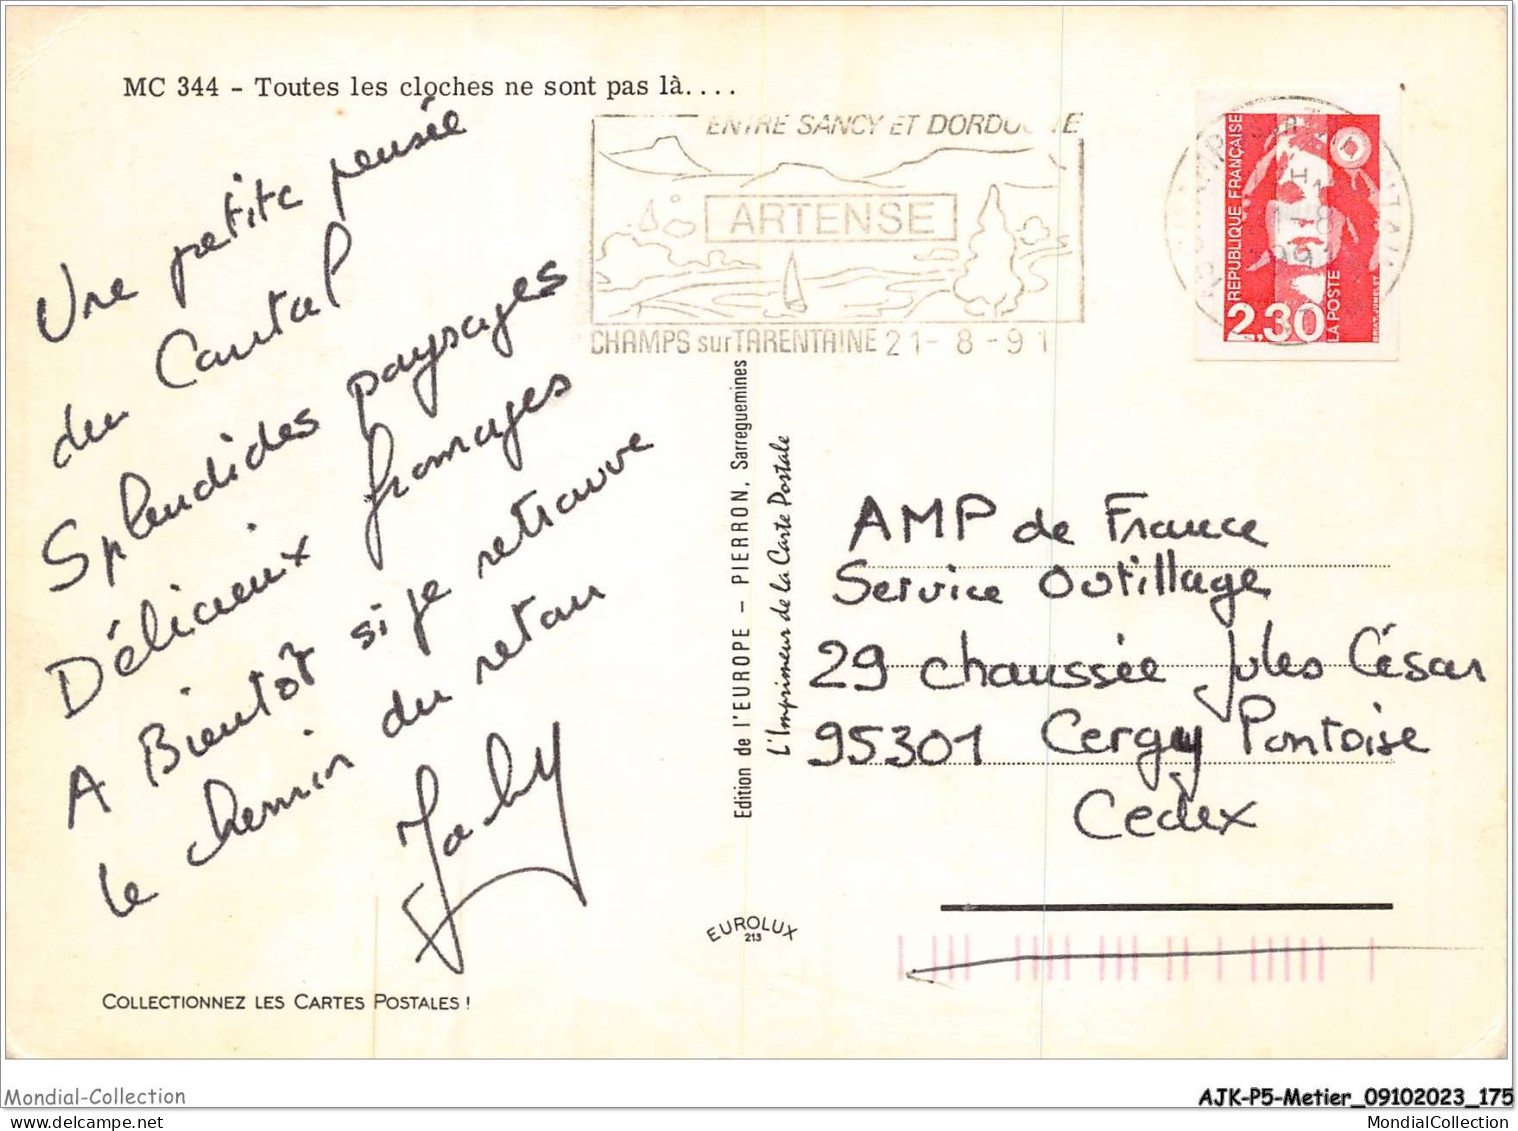 MC 344 - Toutes les cloches ne sont pas là....
Une petite pensée
du Cantal
Splendides paysages
Délicieux fromages
A Bientôt si je retrouve
le chemin du retour
ENTRE SANCY ET
ARTENSE
CHAMPS sur TARENTAINE 21-8-91
REPUBLIQUE FRANÇAISE
2,30
LA POSTE
Edition de l'EUROPE - PIERRON, Sarreguemines
L'Imprimeur de la Carte Postale
AMP de France
Service Outillage
29 chaussée Jules César
95301 Cergy Pontoise
Cedex
EUROLUX
213
COLLECTIONNEZ LES CARTES POSTALES !
Mondial-Collection
AJK-P5-Metier_09102023_175
MondialCollection